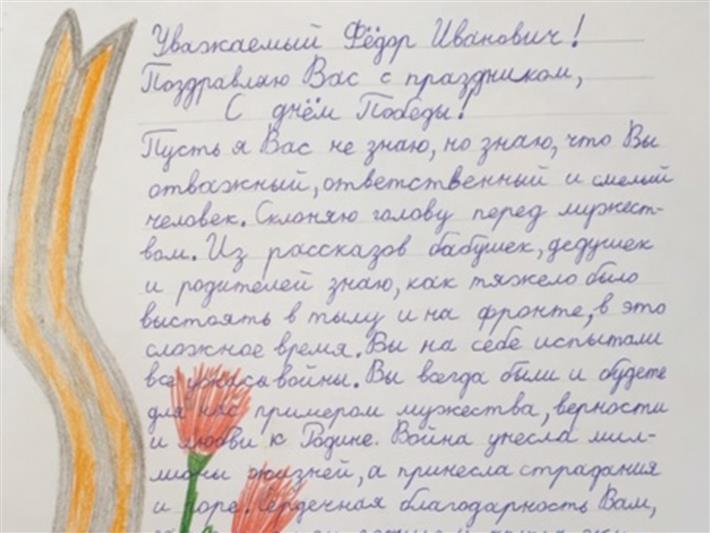 Уважаемый Фёдор Иванович!
Поздравляю Вас с праздником,
С днём Победы!
Пусть я Вас не знаю, но знаю, что Вы
отважный, ответственный и смелый
человек. Склоняю голову перед мужест-
вом. Из рассказов бабушек, дедушек
и родителей знаю, как тяжело было
выстоять в тылу и на фронте, в это
сложное время. Вы на себе испытали
все ужасы войны. Вы всегда были и будете
для нас примером мужества, верности
и любви к Родине. Война унесла мил-
лионы жизней, а принесла страдания
и горе. Сердечная благодарность Вам,